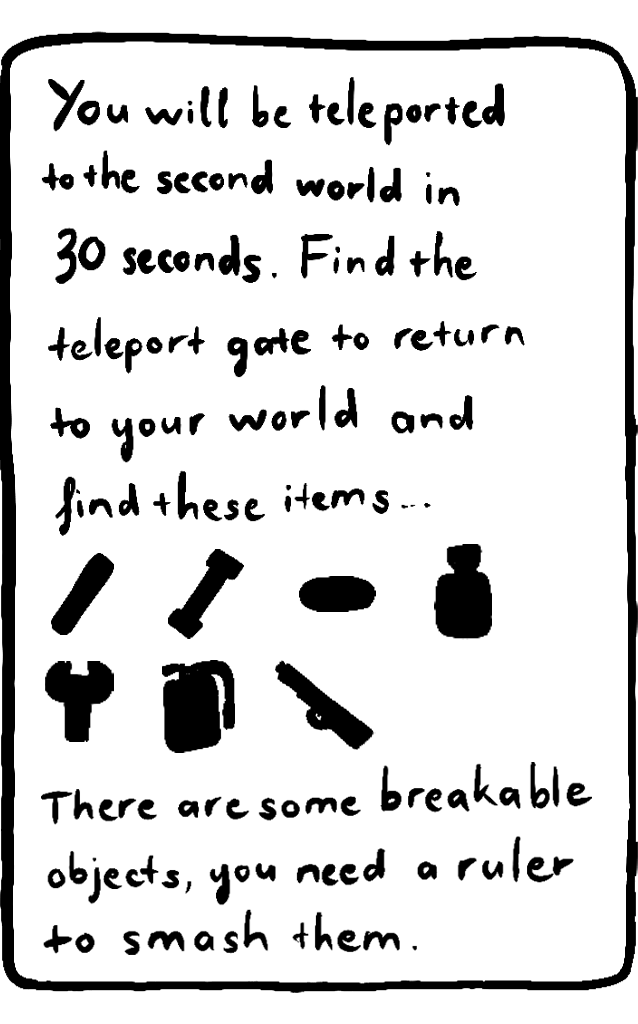 You will be teleported
to the second world in
30 seconds. Find the
teleport gate to return
to your world and
find these items...
There are some breakable
objects, you need a ruler
to smash them.